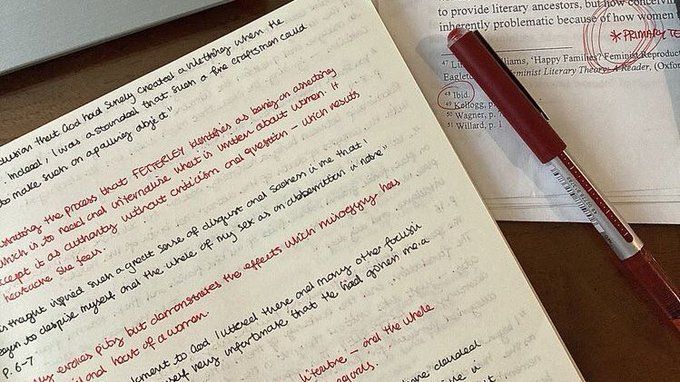 lusion that God had surely created a vile thing when He
Indeed, I was astounded that such a fine craftsman could
to make such an appalling object"
the process that FETTERLEY identifies as being an
which is to read and internalise what is written about women. It
accept it as authority without criticism and question – which results
heartache she feels.
thought inspired such a great sense of disgust and sadness in me that I
began to despise myself and the whole of my sex as an aberration in nature"
P. 6-7
evokes pity but demonstrates the effects which misogyny has
and heart of a woman.
lament to God I uttered these and many other foolish
very unfortunate that He had given me a
literature – and the whole
to provide literary ancestors, but how conceiving
inherently problematic because of how women
*PRIMARY TE
47 Williams, 'Happy Families? Feminist Reproduct
Eagleton Feminist Literary Theory: A Reader, (Oxfor
48 Ibid.
49 Kellogg, p.
50 Wagner, p.
51 Willard, p. 1